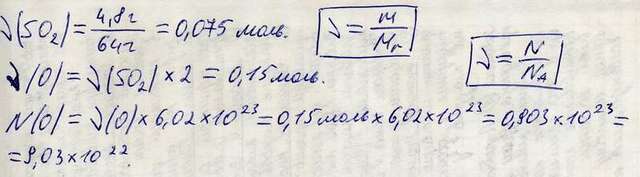 ν(SO₂) = 4,8г/64г = 0,075 моль. ν = m/Mr
ν(O) = ν(SO₂) × 2 = 0,15 моль. ν = N/Nₐ
N(O) = ν(O) × 6,02 × 10²³ = 0,15 моль × 6,02 × 10²³ = 0,903 × 10²³ =
= 9,03 × 10²²